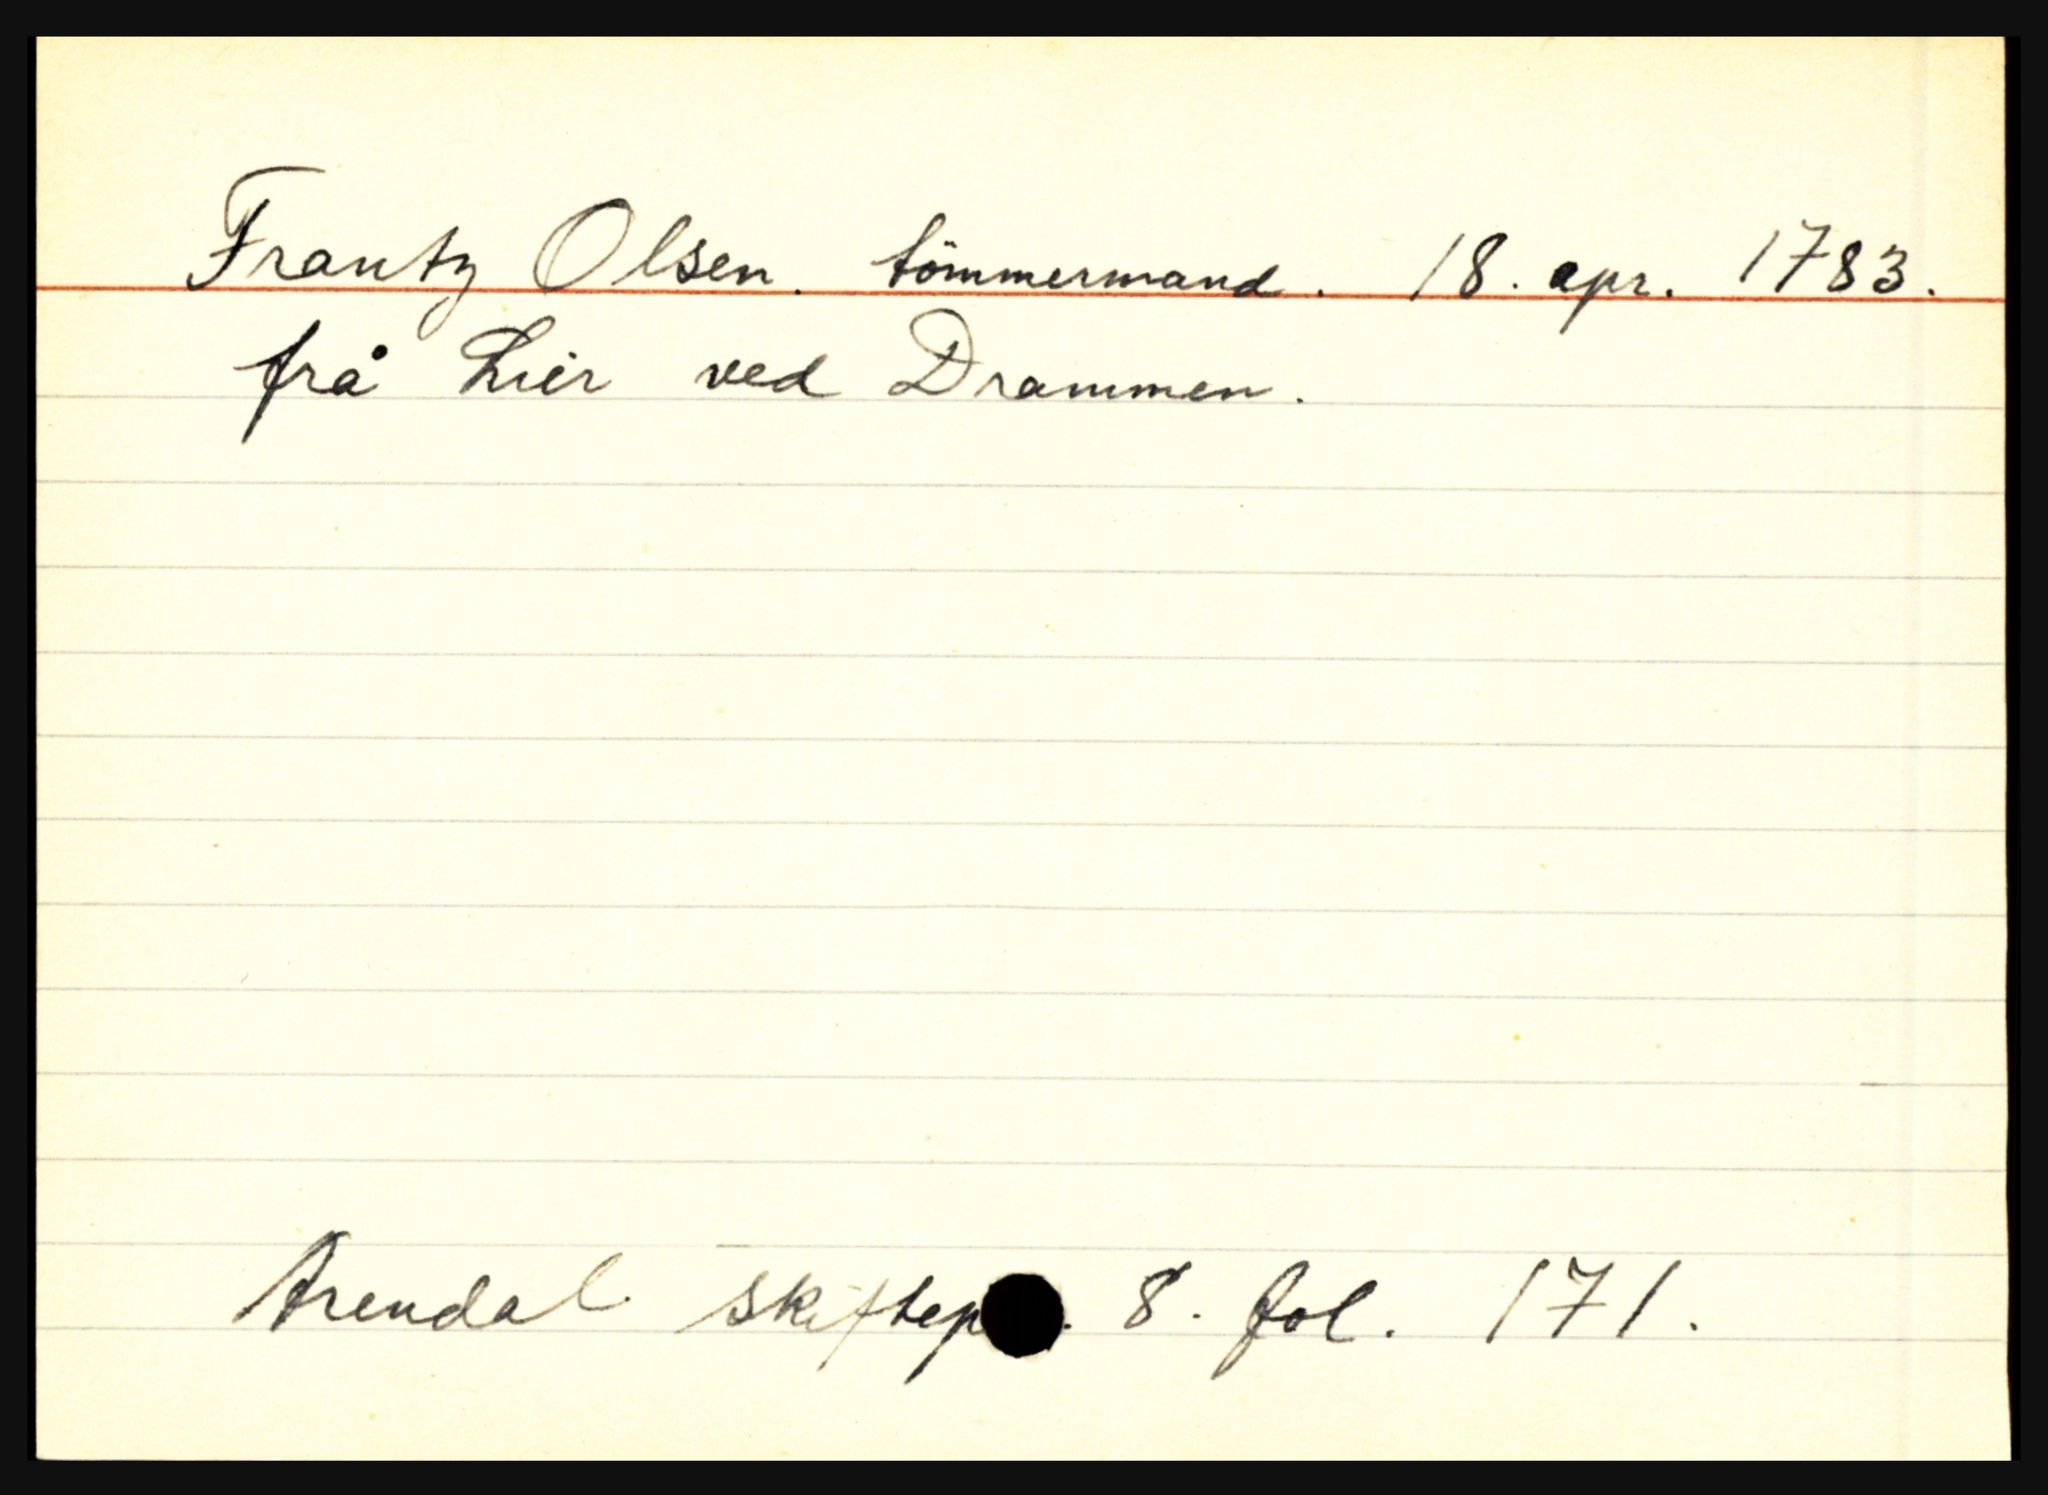 Frantz Olsen. tömmermand. 18. apr. 1783.
frå Lier ved Drammen.
Arendal skiftep. 8. fol. 171.